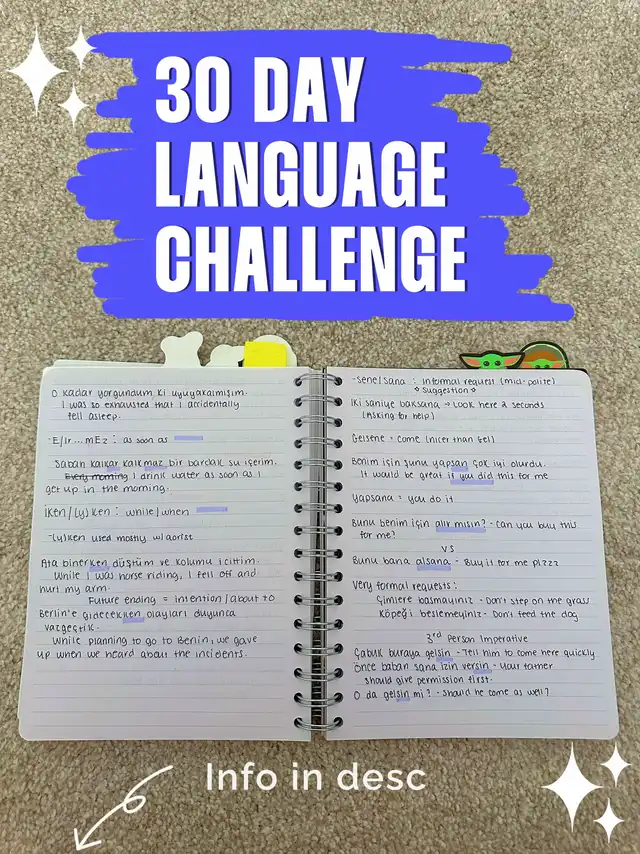 30 DAY
LANGUAGE
CHALLENGE
O kadar yorgundum ki uyuyakalmışım.
I was so exhausted that I accidentally
fell asleep.
-E/Ir...mEz : as soon as
Sabah kalkar kalkmaz bir bardak su içerim.
Every morning I drink water as soon as I
get up in the morning.
iKen/(y)Ken : while/when
-(y)Ken used mostly w/aorist
Ata binerken düştüm ve kolumu icittim.
While I was horse riding, I fell off and
hurt my arm.
Future ending = intention/about to
Berlin'e gidecekken olayları duyunca
vazgeçtik.
While planning to go to Berlin, we gave
up when we heard about the incidents.
-sene/sana : Informal request (mid-polite)
suggestion
İki saniye baksana → Look here 2 seconds
(Asking for help)
Gelsene - Come (nicer than gel)
Benim için şunu yapsan çok iyi olurdu.
It would be great if you did this for me
yapsana = you do it
Bunu benim için alır mısın? - Can you buy this
for me?
VS
Bunu bana alsana - Buy it for me plzzz
Very formal requests :
Çimlere basmayınız - Don't step on the grass
Köpeği beslemeyiniz - Don't feed the dog
3rd Person Imperative
Çabuk buraya gelsin - Tell him to come here quickly
Önce baban sana izin versin - Your father
should give permission first.
O da gelsin mi? - Should he come as well?
Info in desc